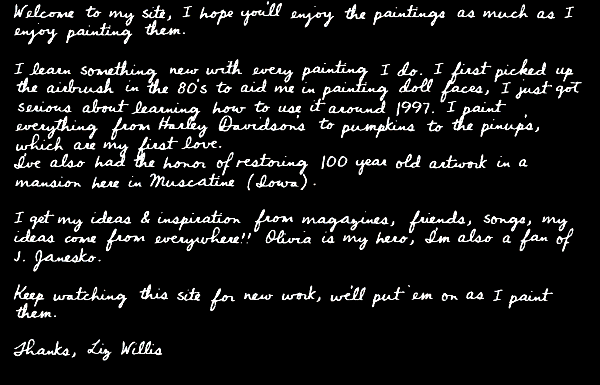 Welcome to my site, I hope you'll enjoy the paintings as much as I
enjoy painting them.
I learn something new with every painting I do. I first picked up
the airbrush in the 80's to aid me in painting doll faces, I just got
serious about learning how to use it around 1997. I paint
everything from Harley Davidson's to pumpkins to the pinup's,
which are my first love.
I've also had the honor of restoring 100 year old artwork in a
mansion here in Muscatine (Iowa).
I get my ideas & inspiration from magazines, friends, songs, my
ideas come from everywhere!! Olivia is my hero, I'm also a fan of
J. Janesko.
Keep watching this site for new work, we'll put 'em on as I paint
them.
Thanks, Liz Willis